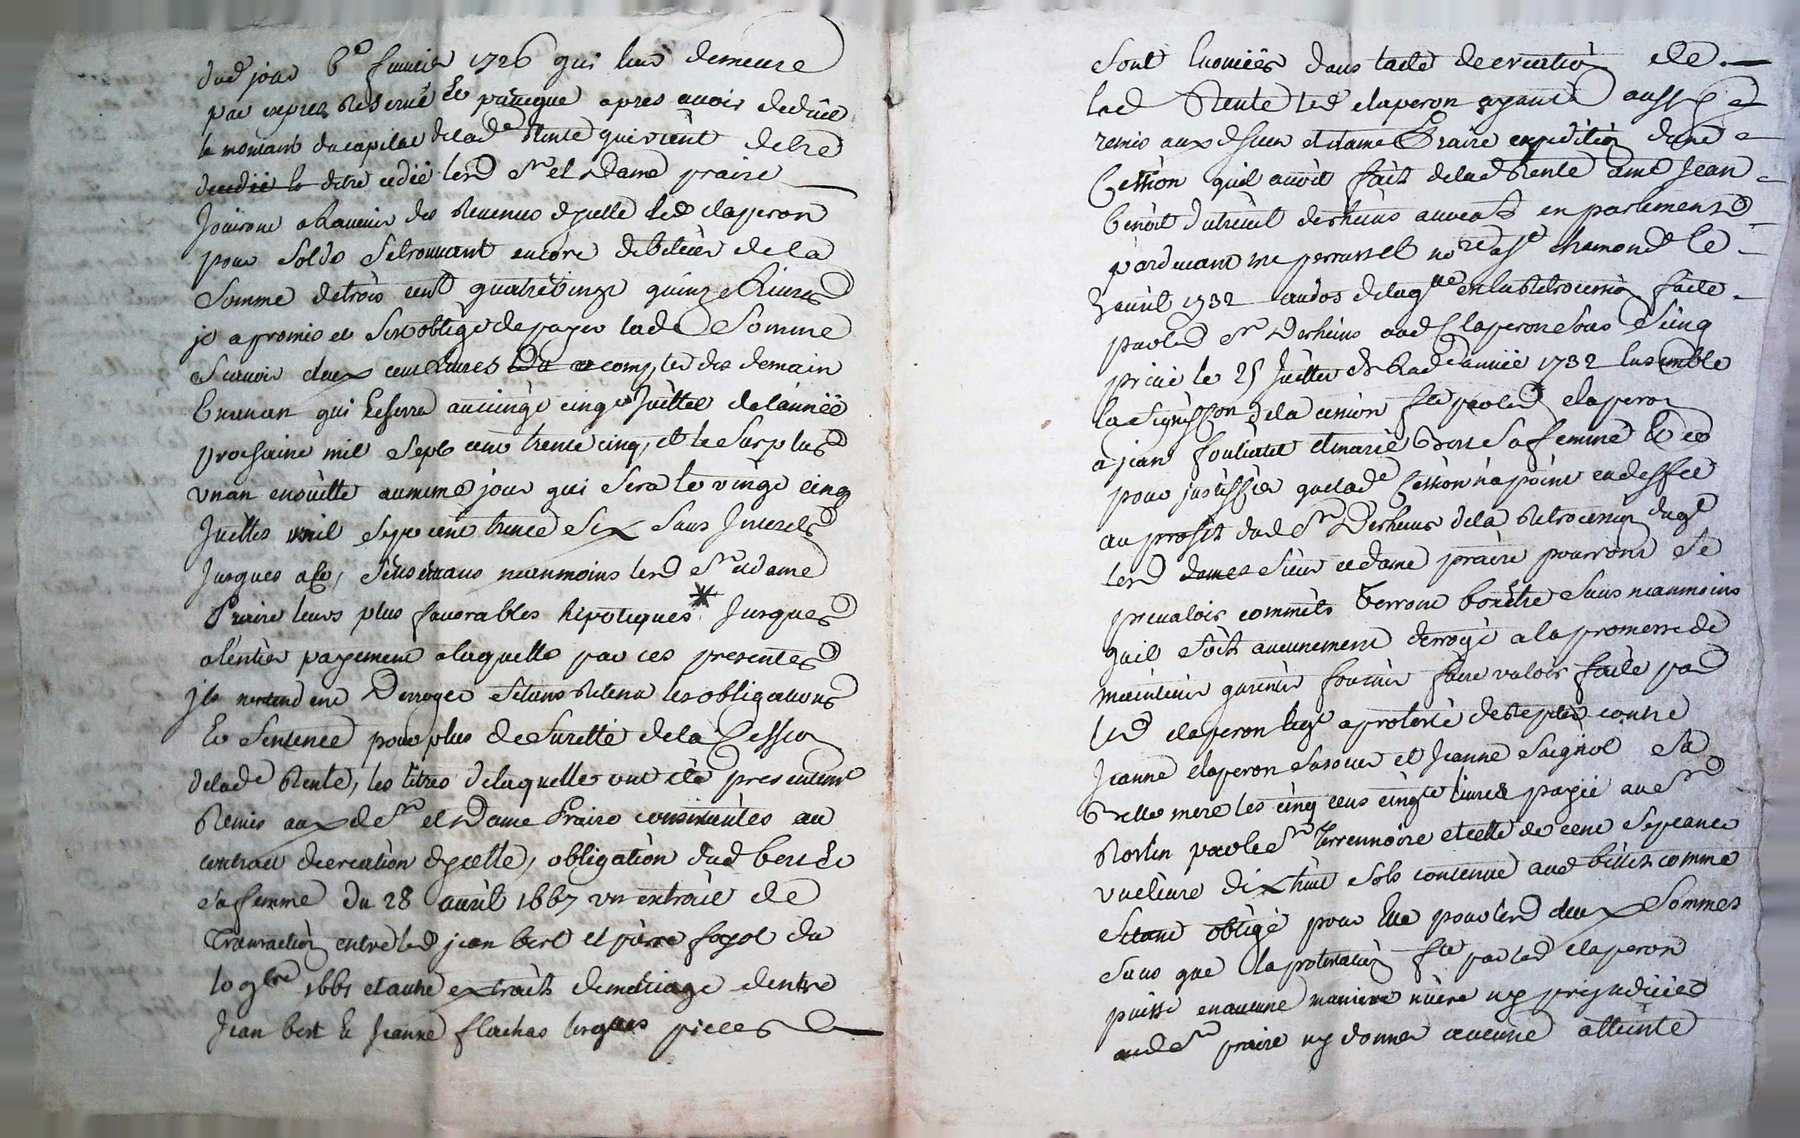 dud jour 6e fevrier 1726 qui leur demeure
par exprez Reservé Et pätegue apres avois deduit
le montant du capital delade Rente qui vient deltre
deedié le ditre cedié lesd Sr et Dame praire
Jouiront alavenir des Revenus dycelle led claperon
pour Solde Setrouvant encore debiteur de la
Somme detrois cent quatrevingt quinze Livres
jl a promis et Sest obligé de payer lade Somme
Scavoir deux cent Livres acompter des demain
En un an qui Eschera auvingt cinqe Juillet delannëe
prochaine mil Sept cent trente cinq, et le Surplus
un an ensuitte aumeme jour qui Sera le vingt cinq
Juillet mil Sept cent trente Six Sans Jnterets
Jusques alors, Reservans neanmoins lesd Sr et dame
Praire leurs plus favorables hipoteques * Jusques
alentier payement alaquelle par ces presentes
jls nentendent Derroger Setans Retenu les obligations
Et Sentence pour plus de Suretté de la Cession
delade Rente, les titres delaquelle ont eté presentemt
Remis auxd Sr et Dame Praire consistantes au
contract decreation dycelle, obligation dud bert de
safemme du 28 avril 1667 un extrait de
Transaction entre led jean bert et pierre fayol du
10 9bre 1661 et autre extrait demariage dentre
Jean bert Et Jeanne flachas lesques pieces
Sont Enoncées dans lacte decreation de
lad Rente led claperon ayant aussy
remis auxd Sieur et dame Praire expedition dune
Cession quil avoit fait delad Rente a me Jean
benoit dutreüil derheins avocat en parlement
pardevant me perrussel nore a St chamond le
3 avril 1732 audos delaqlle est la Retrocession faite
parled Sr Derheins aud Claperon Sous Seing
privé le 25 Juillet de lad année 1732 Ensemble
la Signifficon dela cession fte parled claperon
a jean foulietet et marie brosse Safemme Et ce
pour justiffier quelade Cession na point eu deffet
au profit dud Sr Derheins dela Retrocession duql
lesd dames Sieur et dame praire pourront Se
prevaloir comme ils verront bon etre Sans neanmoins
quil Soit aucunement derrogé ala promesse de
maintenir garentir fournir faire valoir faite par
led claperon leql a protesté de Repeter contre
Jeanne claperon Sasoeur et Jeanne Saignol Sa
Bellemere les cinq cens cinqte livres payé au Sr
Rostin parle Sr Terrenoire et celle de cent Septante
une livre dixhuit Sols contenue aud billet comme
Setant obligé pour Elle pour lesd deux Sommes
Sans que la protestation fte parled claperon
puisse en aucune maniere nuire ny prejudicier
aud Sr praire ny donner aucune atteinte